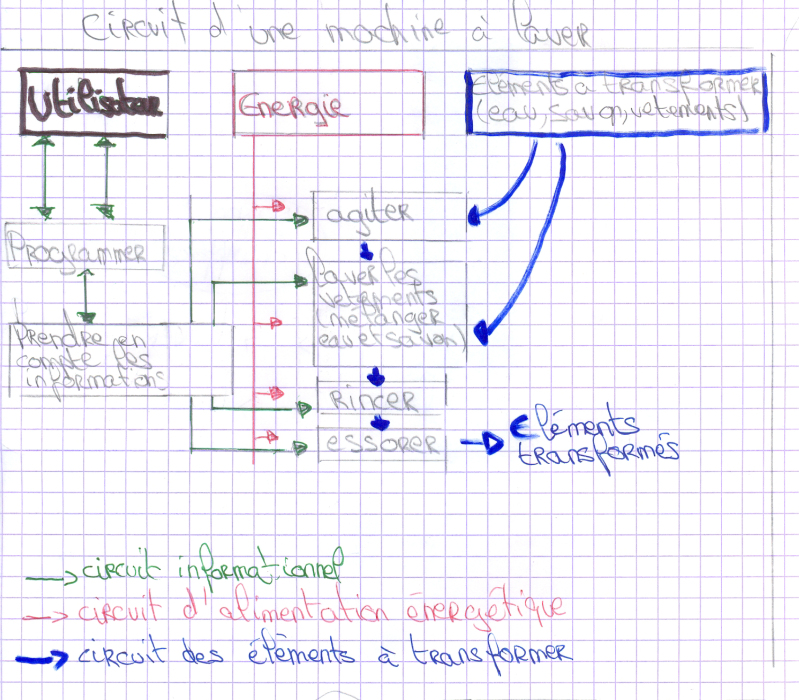 Circuit d'une machine à laver
Utilisateur
Energie
Eléments à transformer
(eau, savon, vetements)
Programmer
agiter
laver les
vetements
(mélanger
eau et savon)
Prendre en
compte les
informations
rincer
essorer
Eléments
transformés
circuit informationnel
circuit d'alimentation énergétique
circuit des éléments à transformer